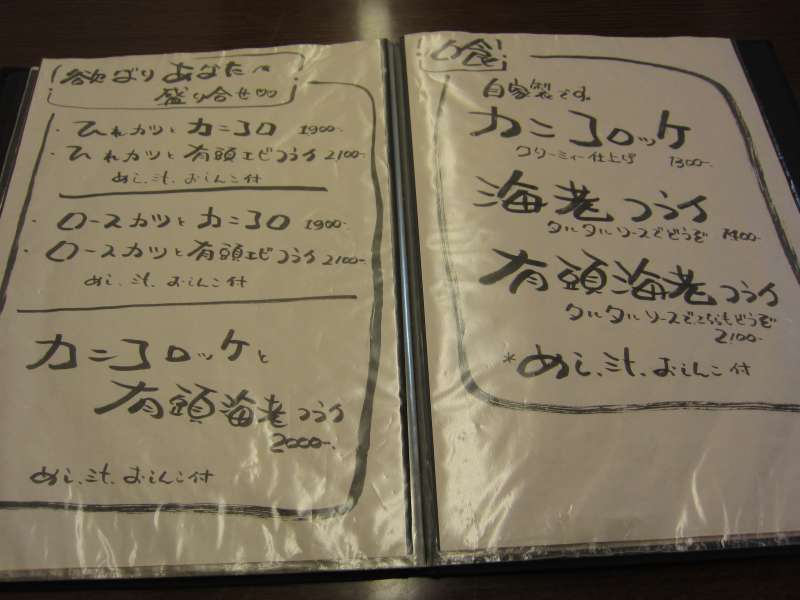 欲ばりあなたへ
盛り合せ
・ひれカツとカニコロ 1900-
・ひれカツと有頭エビフライ 2100-
めし、汁、おしんこ付
・ロースカツとカニコロ 1900-
・ロースカツと有頭エビフライ 2100-
めし、汁、おしんこ付
カニコロッケと
有頭海老フライ
2000-
めし、汁、おしんこ付
食
自家製です。
カニコロッケ
クリーミィー仕上げ 1300-
海老フライ
タルタルソースでどうぞ
有頭海老フライ
タルタルソースでどうぞ
2100-
*めし、汁、おしんこ付